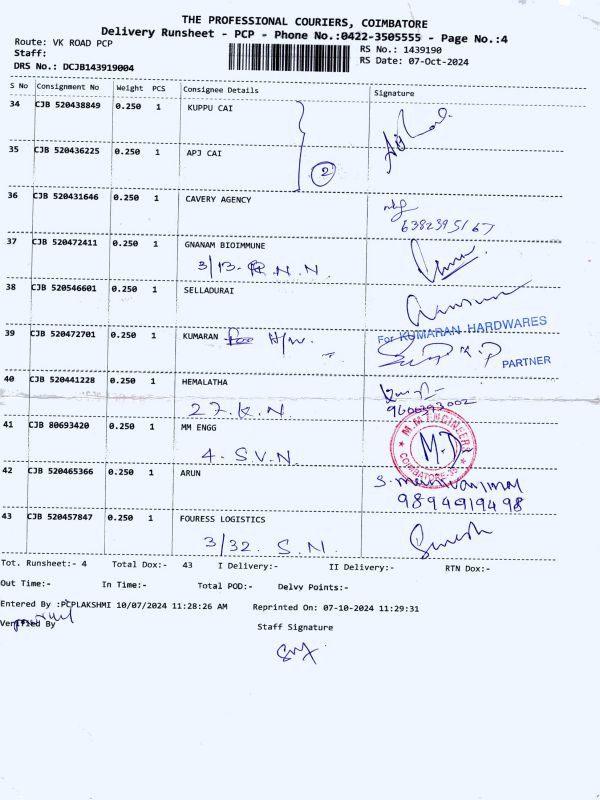 THE PROFESSIONAL COURIERS, COIMBATORE
Delivery Runsheet - PCP - Phone No.:0422-3505555 - Page No.:4
Route: VK ROAD PCP RS No.: 1439190
Staff: RS Date: 07-Oct-2024
DRS No.: DCJB143919004
S No Consignment No Weight PCS Consignee Details Signature
34 CJB 520438849 0.250 1 KUPPU CAI
35 CJB 520436225 0.250 1 APJ CAI
2
36 CJB 520431646 0.250 1 CAVERY AGENCY
6382395167
37 CJB 520472411 0.250 1 GNANAM BIOIMMUNE
3/13. R.N.N.
38 CJB 520546601 0.250 1 SELLADURAI
39 CJB 520472701 0.250 1 KUMARAN H/w. For KUMARAN HARDWARES
PARTNER
40 CJB 520441228 0.250 1 HEMALATHA
27.K.N 9600393002
41 CJB 80693420 0.250 1 MM ENGG
M.D
COIMBATORE-35
4. S.V.N.
42 CJB 520465366 0.250 1 ARUN
9894919498
43 CJB 520457847 0.250 1 FOURESS LOGISTICS
3/32. S.N. Suresh
Tot. Runsheet:- 4 Total Dox:- 43 I Delivery:- II Delivery:- RTN Dox:-
Out Time:- In Time:- Total POD:- Delvy Points:-
Entered By :PCPLAKSHMI 10/07/2024 11:28:26 AM Reprinted On: 07-10-2024 11:29:31
Verified By Staff Signature